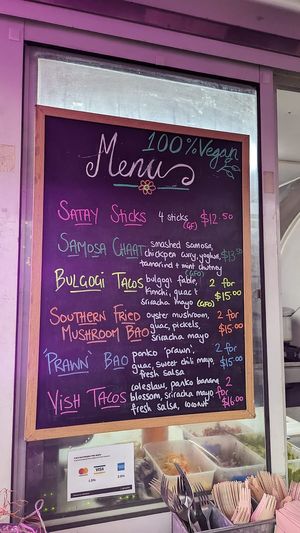 100% Vegan
Menu
SATAY STICKS 4 sticks (GF) $12.50
SAMOSA CHAAT smashed samosa, chickpea curry, yoghurt, tamarind + mint chutney $13.50
BULGOGI TACOS bulgogi fable, kimchi, guac + sriracha mayo (GFO) 2 for $15.00
SOUTHERN FRIED MUSHROOM BAO oyster mushroom, guac, pickels, sriracha mayo 2 for $15.00
'PRAWN' BAO panko 'prawn', guac, sweet chilli mayo, fresh salsa 2 for $15.00
VISH TACOS coleslaw, panko banana blossom, sriracha mayo, fresh salsa, coconut 2 for $16.00
VISA